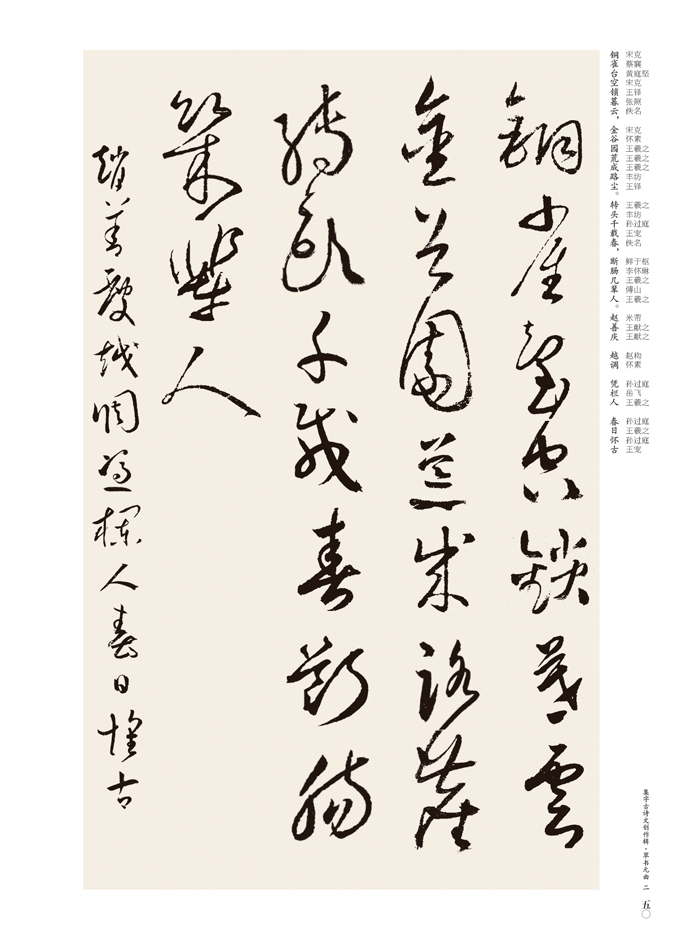 銅雀臺空鎖暮雲
金谷園荒成路塵
轉頭千載春斷腸
幾輩人
趙善慶越調憑欄人春日懷古
铜雀台空锁暮云，金谷园荒成路尘。转头千载春，断肠几辈人。赵善庆 越调 凭栏人 春日怀古
宋克 蔡襄 黄庭坚 宋克 王铎 张照 佚名 宋克 怀素 王羲之 王羲之 王羲之 丰坊 王铎 王羲之 丰坊 孙过庭 王宠 佚名 鲜于枢 李怀琳 王羲之 傅山 王羲之 米芾 王献之 王献之 赵构 怀素 孙过庭 岳飞 王羲之 孙过庭 王羲之 孙过庭 王宠
集字古诗文创作辑·草书元曲 二
五〇